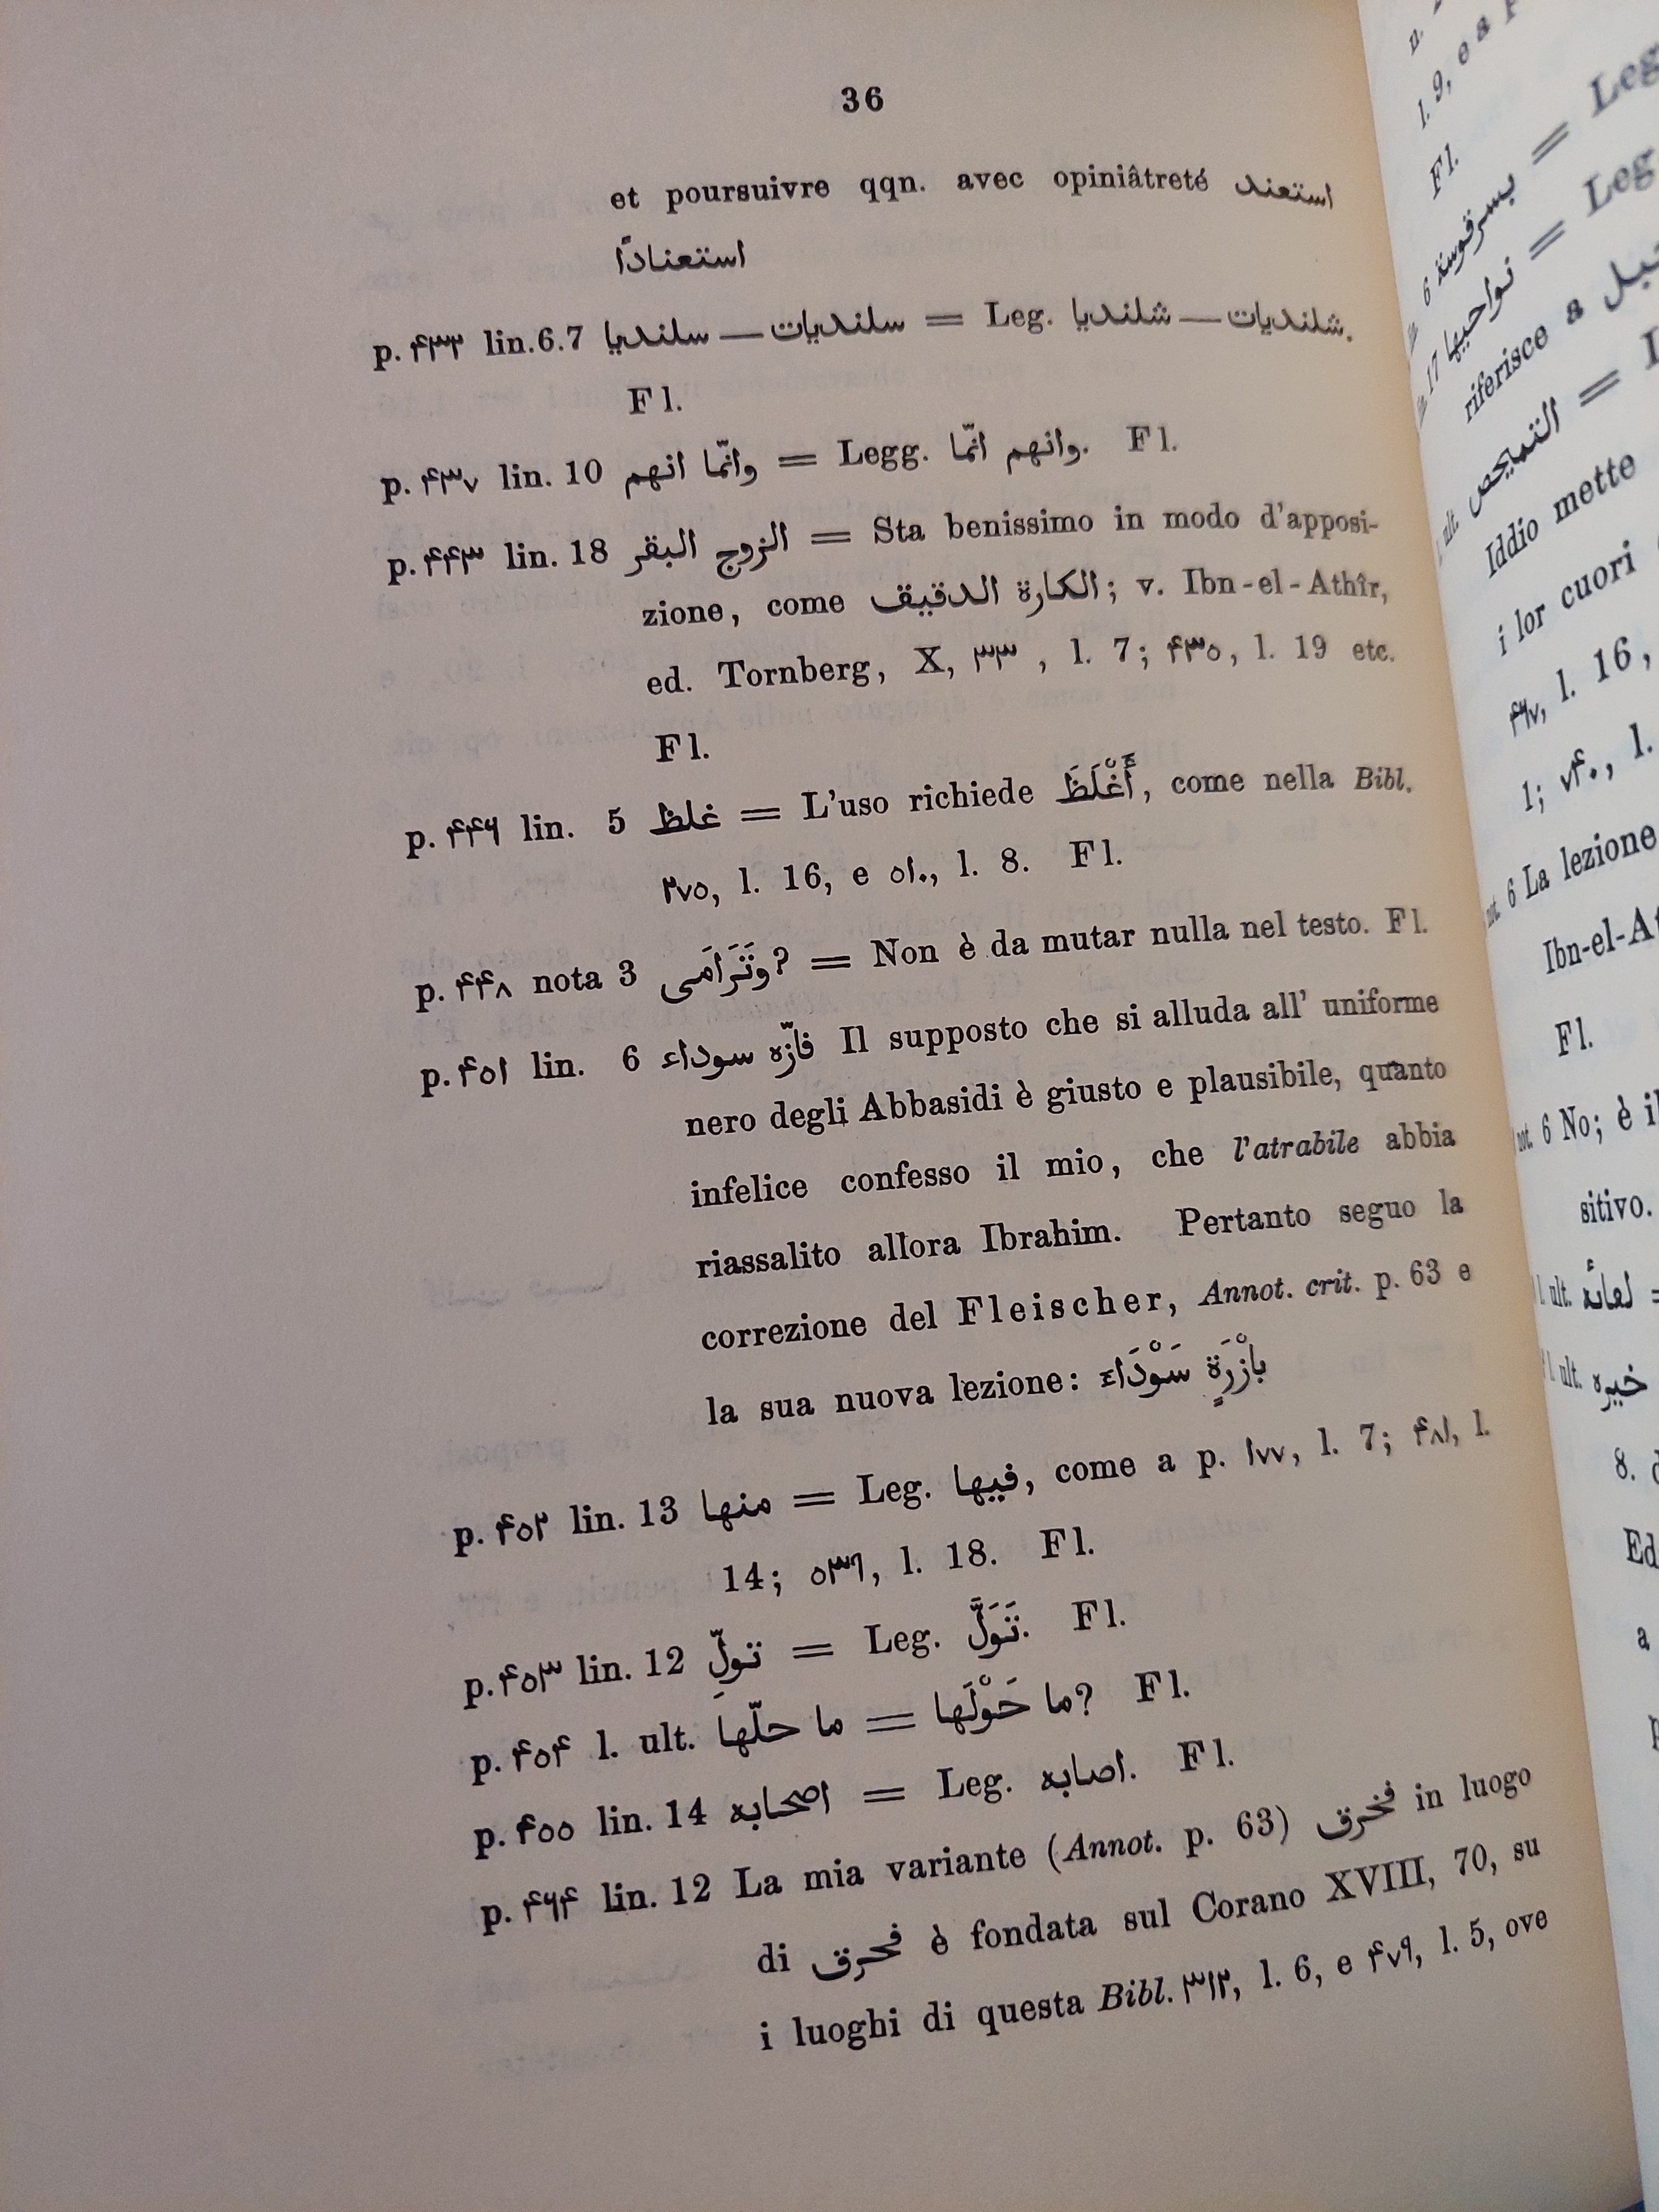 36
et poursuivre qqn. avec opiniâtreté استعند
استعنادًا
p. ۴۳۳ lin.6.7 سلنديات — سلنديا = Leg. شلنديات — شلنديا.
Fl.
p. ۴۳۷ lin. 10 وانّما انهم = Legg. وانهم انّما. Fl.
p. ۴۴۳ lin. 18 الزوج البقر = Sta benissimo in modo d'apposi-
zione, come الكارة الدقيق; v. Ibn-el-Athîr,
ed. Tornberg, X, ۳۳, l. 7; ۴۳٥, l. 19 etc.
Fl.
p. ۴۴۶ lin. 5 غلظ = L'uso richiede أَغْلَظَ, come nella Bibl.
۲۷٥, l. 16, e ٥١٠, l. 8. Fl.
p. ۴۴۸ nota 3 وتَتَرَامَى? = Non è da mutar nulla nel testo. Fl.
p. ۴٥١ lin. 6 فازّه سوداء Il supposto che si alluda all' uniforme
nero degli Abbasidi è giusto e plausibile, quanto
infelice confesso il mio, che l'atrabile abbia
riassalito allora Ibrahim. Pertanto seguo la
correzione del Fleischer, Annot. crit. p. 63 e
la sua nuova lezione: بازْرَةٍ سَوْدَاءَ
p. ۴٥۲ lin. 13 منها = Leg. فيها, come a p. ١٧٧, l. 7; ۴٨١, l.
14; ٥٣٦, l. 18. Fl.
p. ۴٥۳ lin. 12 تولِّ = Leg. تَوَلَّ. Fl.
p. ۴٥۴ l. ult. ما حلّها = ما حَوْلَها? Fl.
p. ۴٥٥ lin. 14 اصحابه = Leg. اصابه. Fl.
p. ۴۶۴ lin. 12 La mia variante (Annot. p. 63) فخرق in luogo
di فحرق è fondata sul Corano XVIII, 70, su
i luoghi di questa Bibl. ۳١۲, l. 6, e ۴٧٩, l. 5, ove
l. 9, e a
Fl.
6 بسرقوسة = Leg
17 نواحيها = Leg
riferisce a
ult. التمحيص =
Iddio mette
i lor cuori
۴۶٧, l. 16,
1; ٧۴٠, l.
not. 6 La lezione
Ibn-el-At
Fl.
not. 6 No; è il
sitivo.
l. ult. لعانة =
l. ult. خيره
8.
Ed
a